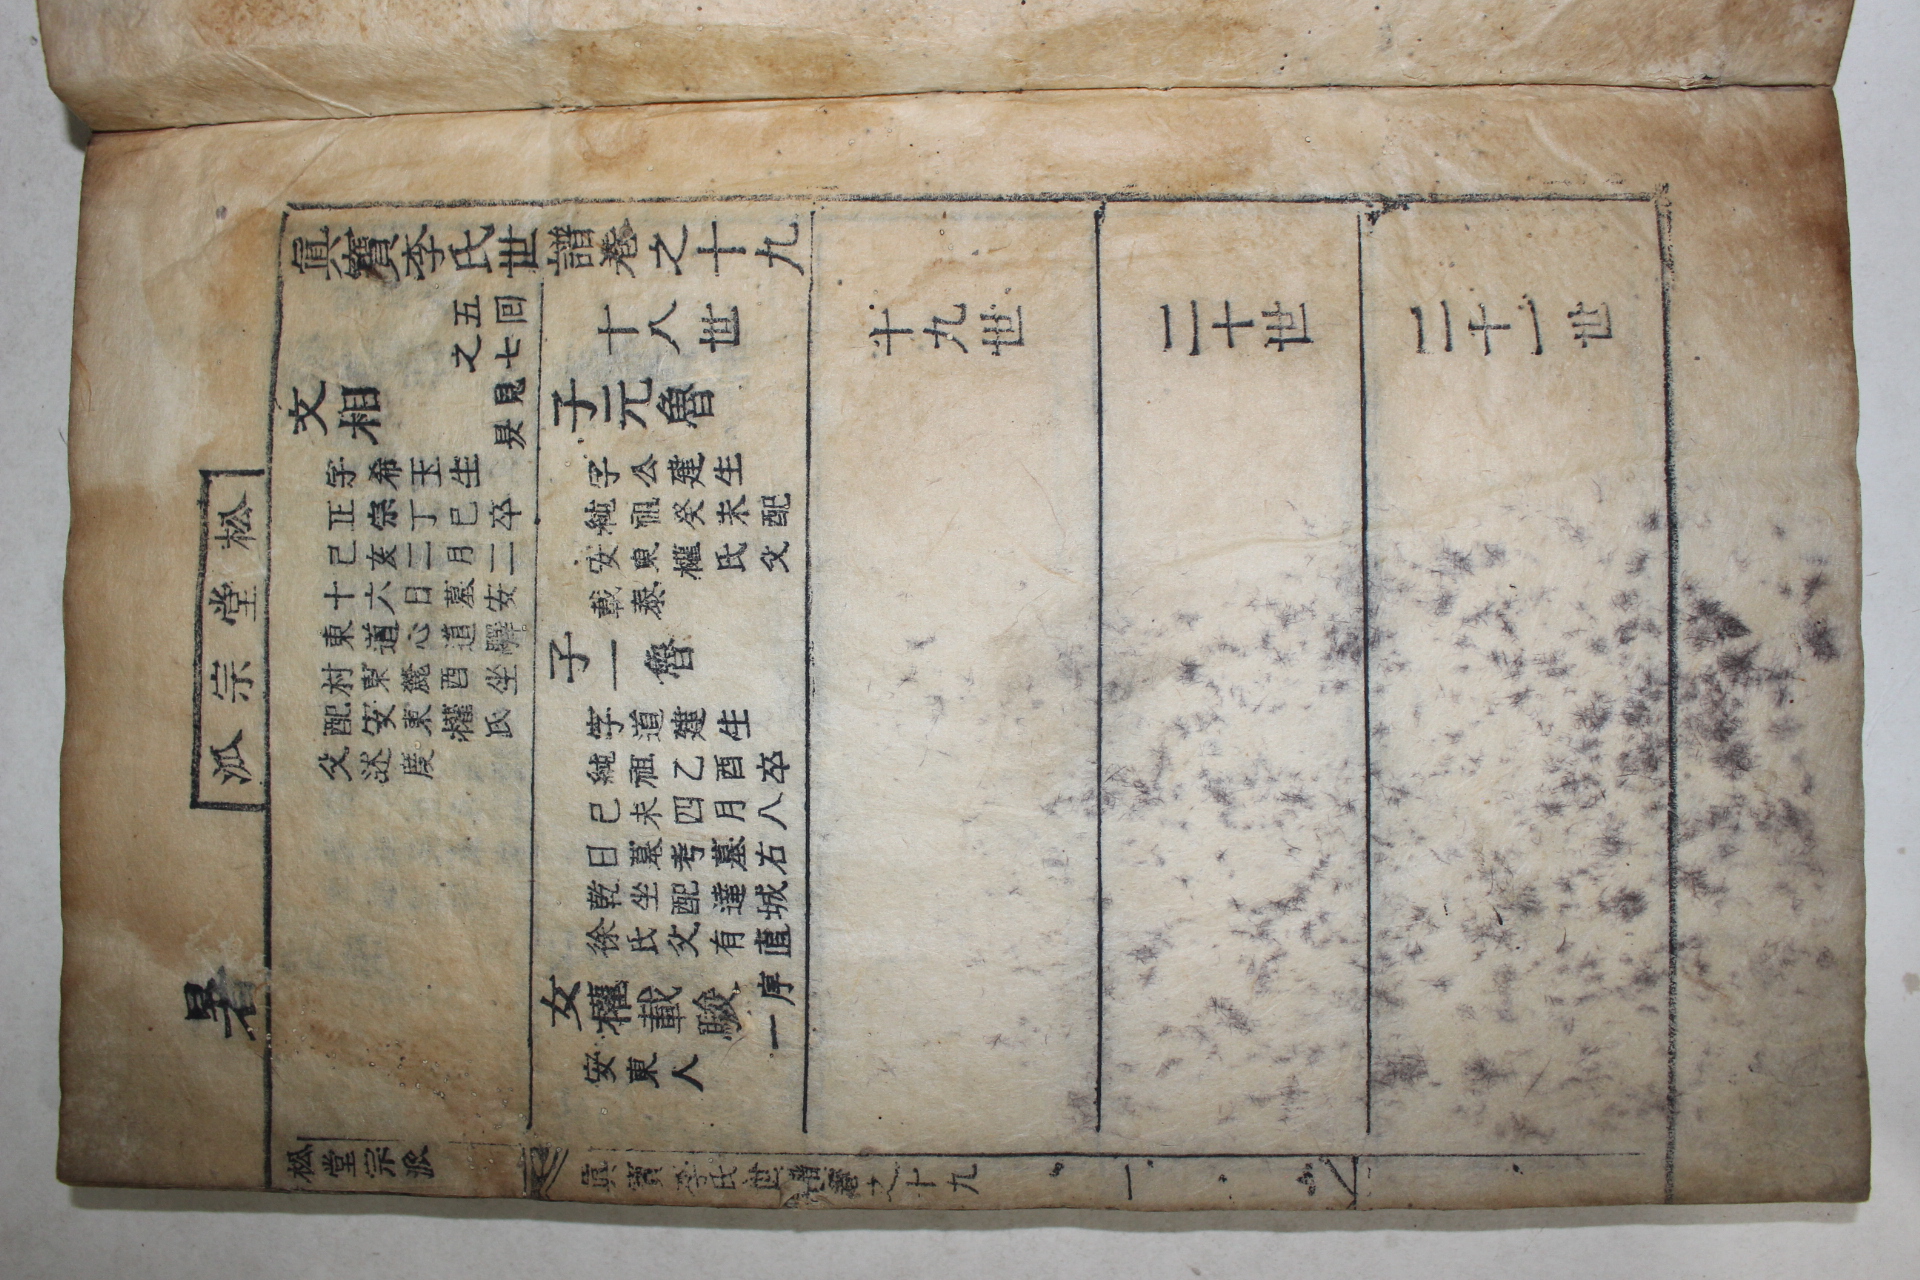 眞寶李氏世譜卷之十九
五回
之七
見
昃
文相
字希玉生
正宗丁巳卒
己亥二月二
十六日墓安
東道心道驛
村東麓酉坐
配安東權氏
父述度
十八世
子元魯
字公建生
純祖癸未配
安東權氏父
載泰
子一魯
字道建生
純祖乙酉卒
己未四月八
日墓考墓右
乾坐配達城
徐氏父有直
序
一
女權載駿
安東人
十九世
二十世
二十一世
松堂宗派
暑
松堂宗派
眞寶李氏世譜卷之十九
一